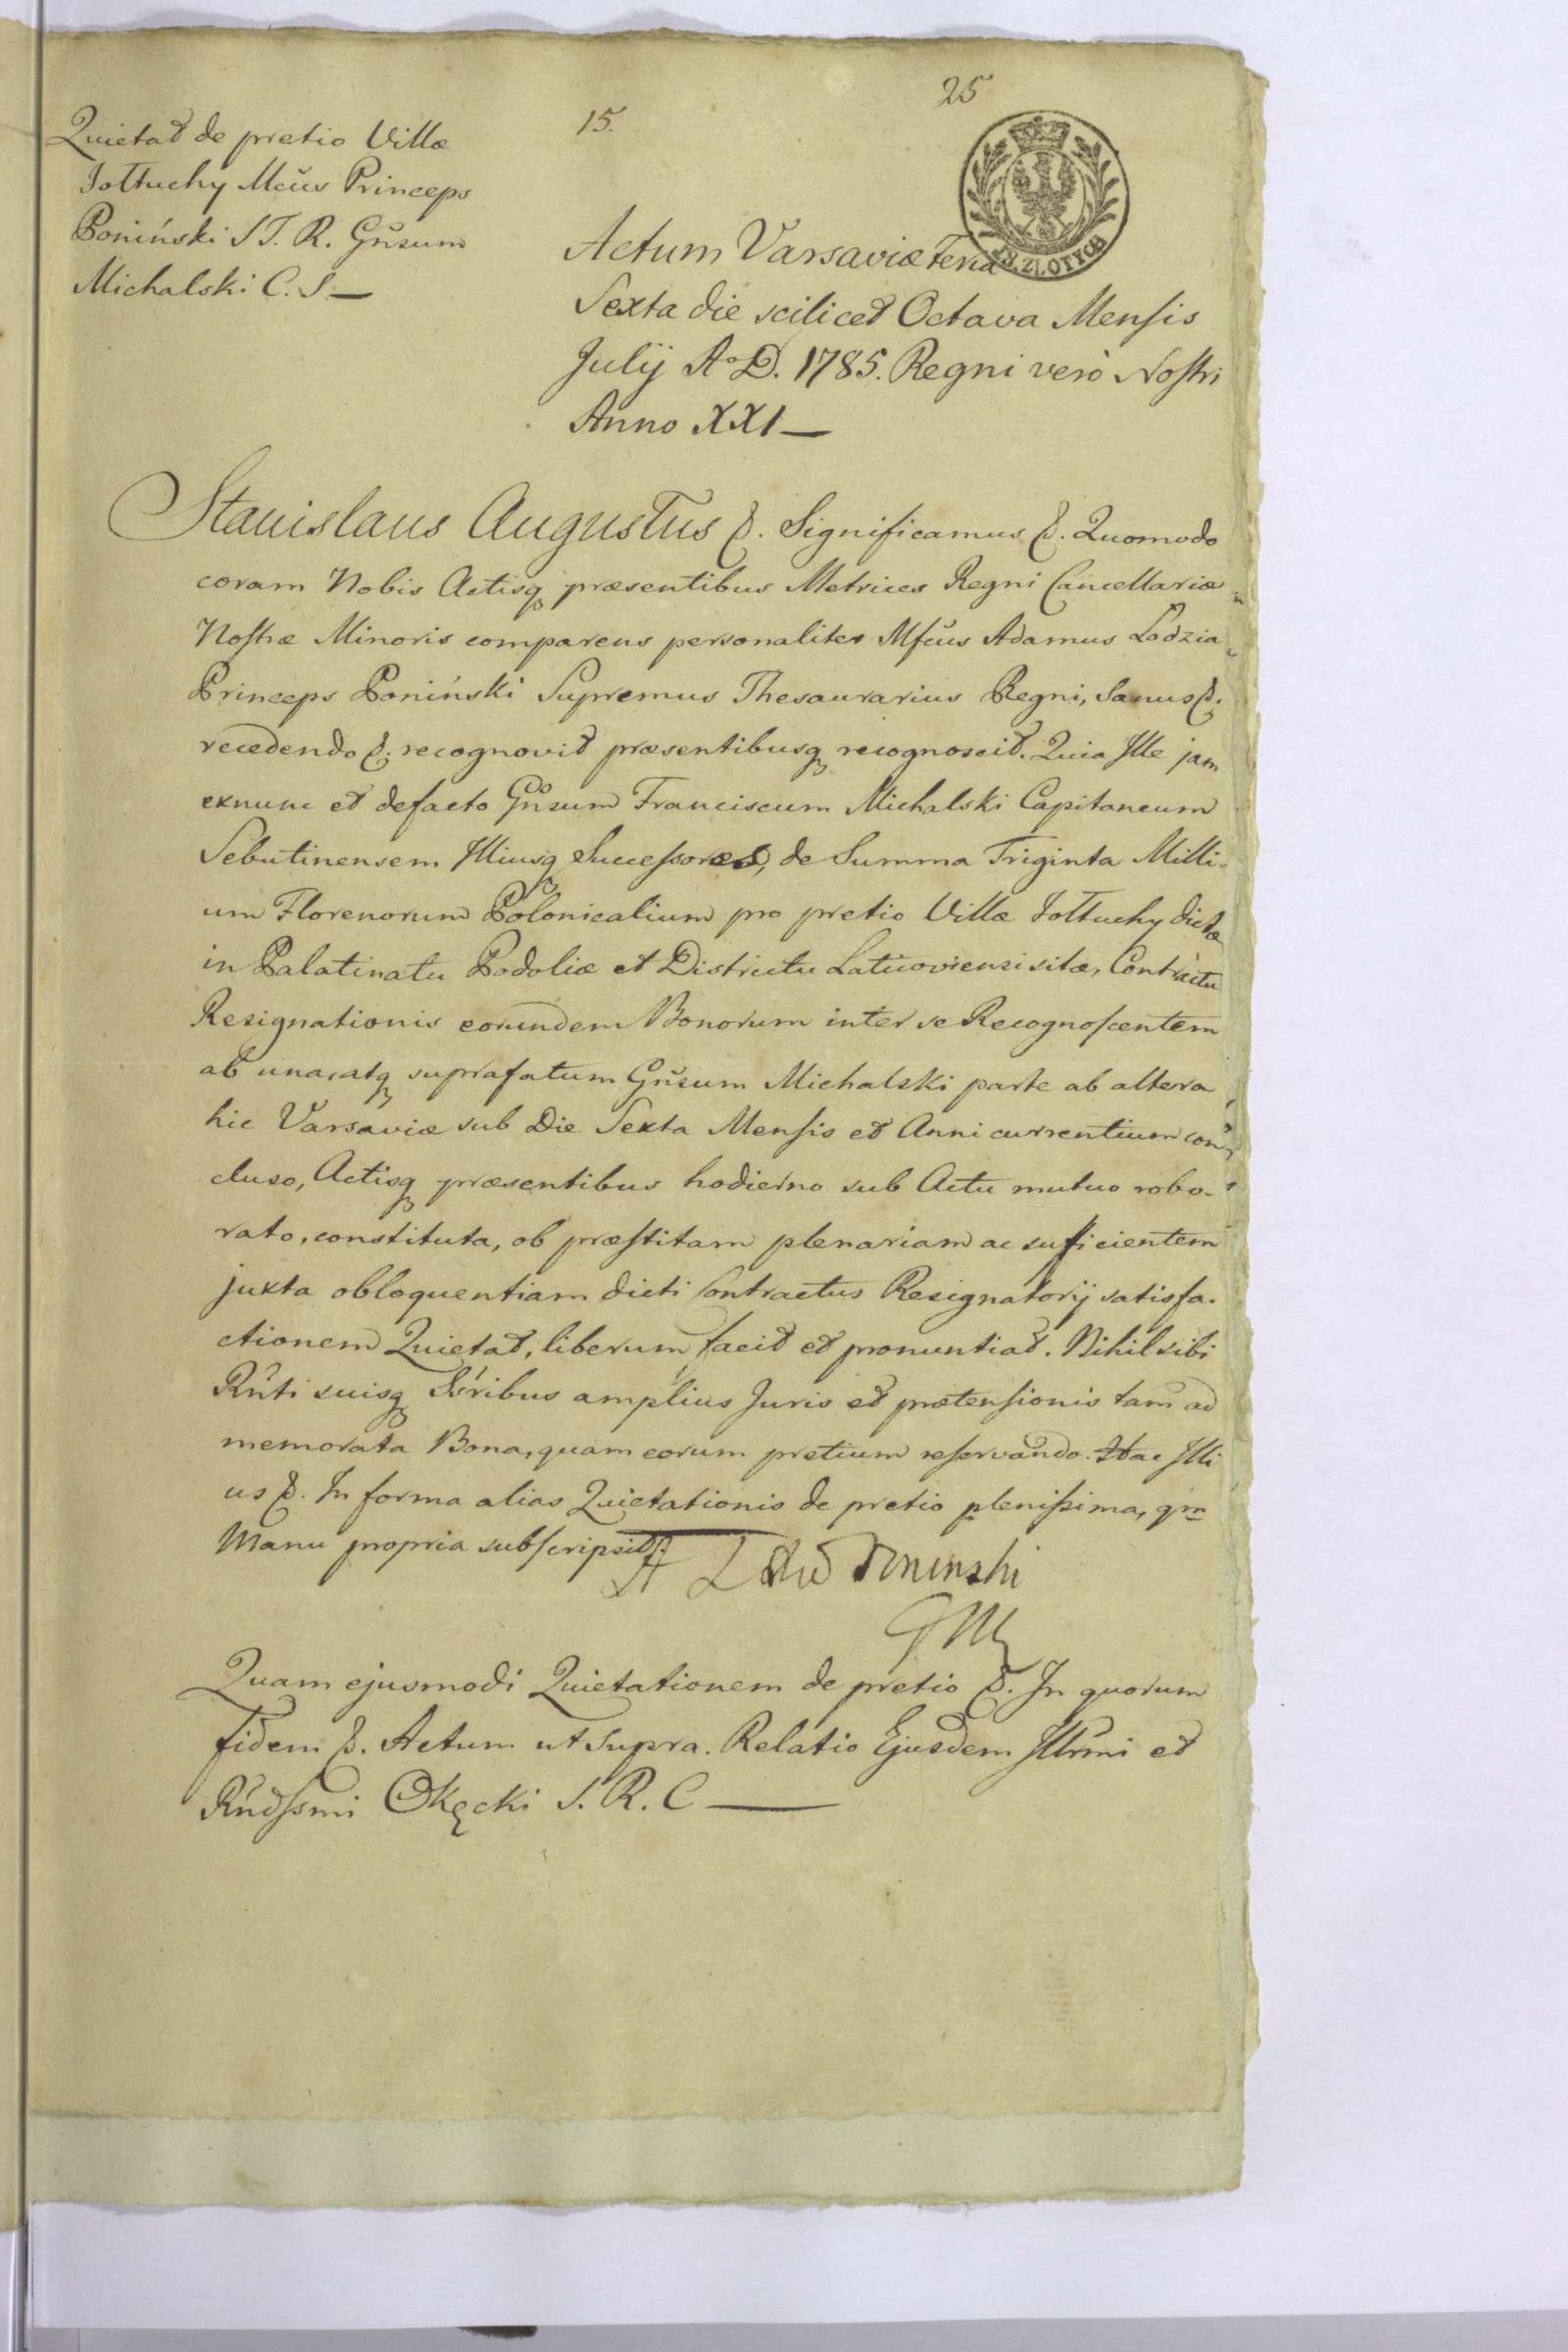 25
15.
Quietat de pretio Villæ
Jołtuchy Mcus Princeps
Poniński S T. R. Gnsum
Michalski C. S —
Z. ZLOTYCH
Actum Varsaviæ Feria
Sexta die scilicet Octava Mensis
Julÿ Ao D. 1785. Regni verò Nostri
Anno XXI —
Stanislaus Augustus &. Significamus &. Quomodo
coram Nobis Actisq præsentibus Metrices Regni Cancellariæ
Nostræ Minoris comparens personaliter Mfcus Adamus Lodzia
Princeps Poniński Supremus Thesaurarius Regni, Sanus &.
recedendo &. recognovit præsentibusq recognoscit. Quia Ille jam
exnunc et defacto Gnsum Franciscum Michalski Capitaneum
Sebutinensem Illiusq Successores, de Summa Triginta Milli-
um Florenorum Polonicalium pro pretio Villæ Jołtuchy dictæ
in Palatinatu Podoliæ et Districtu Laticoviensi sitæ, Contractu
Resignationis eorundem Bonorum inter se Recognoscentem
ab una, atq suprafatum Gnsum Michalski parte ab altera
hic Varsaviæ sub Die Sexta Mensis et Anni currentium con-
cluso, Actisq præsentibus hodierno sub Actu mutuo robo-
rato, constituta, ob præstitam plenariam ac sufficientem
juxta obloquentiam dicti Contractus Resignatorÿ satisfa-
ctionem Quietat, liberum facit et pronuntiat. Nihil sibi
Rnti suisq Ssribus amplius Juris et prætensionis tam ad
memorata Bona, quam eorum pretium reservando. Hac Illi
us &. In forma alias Quietationis de pretio plenissima, qm
Manu propria subscripsit.
A Poninski
Quam ejusmodi Quietationem de pretio &. In quorum
fidem &. Actum ut supra. Relatio Ejusdem Illrmi et
Rndssmi Okęcki S. R. C —